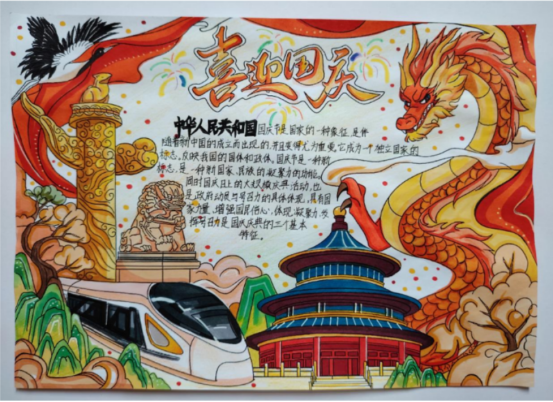 喜迎国庆
中华人民共和国国庆节是国家的一种象征,是伴
随着新中国的成立而出现的,并且变得尤为重要,它成为一个独立国家的
标志,反映我国的国体和政体。国庆节是一种新
标志,是一种新国家、民族的凝聚力的功能,
同时国庆日上的大规模庆典活动,也
是政府动员与号召力的具体体现,具有国
家力量、增强国民信心、体现凝聚力、发
挥号召力是国庆庆典的三个基本
特征。